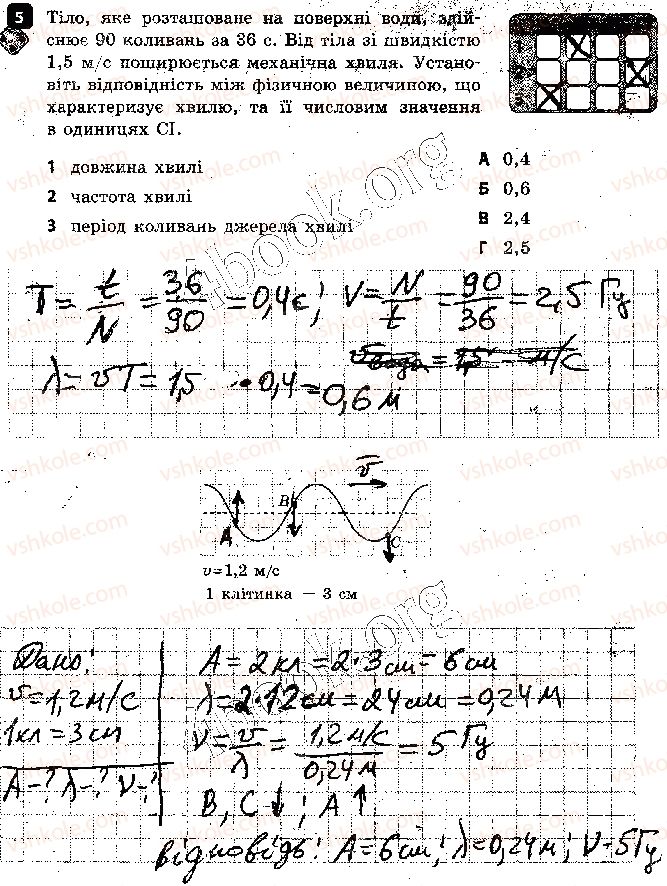 5 Тіло, яке розташоване на поверхні води, здій-
снює 90 коливань за 36 с. Від тіла зі швидкістю
1,5 м/с поширюється механічна хвиля. Устано-
віть відповідність між фізичною величиною, що
характеризує хвилю, та її числовим значення
в одиницях СІ.
1 довжина хвилі
2 частота хвилі
3 період коливань джерела хвилі
А 0,4
Б 0,6
В 2,4
Г 2,5
T = t/N = 36/90 = 0,4с; ν = N/t = 90/36 = 2,5 Гц
λ = vT = 1,5 · 0,4 = 0,6 м
v
А В С
v=1,2 м/с
1 клітинка — 3 см
Дано:
v=1,2м/с
1кл=3см
A-? λ-? ν-?
A = 2кл = 2·3см = 6см
λ = 2·12см = 24см = 0,24м
ν = v/λ = 1,2м/с / 0,24м = 5 Гц
В, С ↓; А ↑
відповідь: A=6см; λ=0,24м; ν=5Гц
4book.org
4book.org
vshkole.com